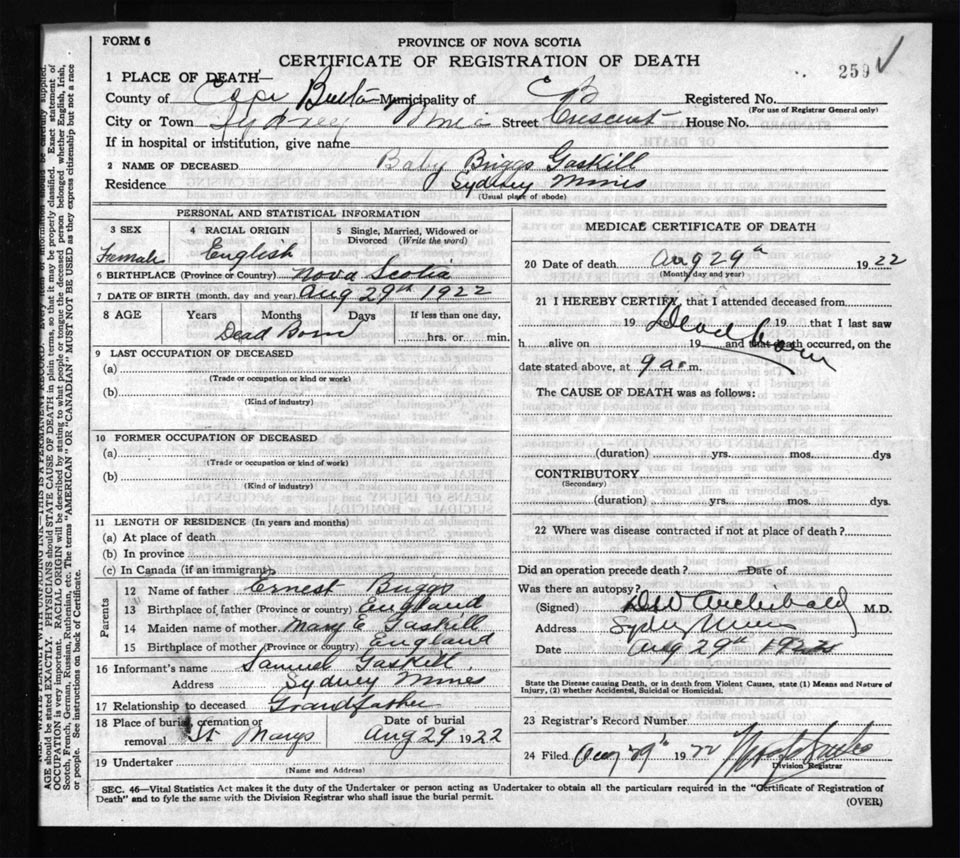 FORM 6
PROVINCE OF NOVA SCOTIA
CERTIFICATE OF REGISTRATION OF DEATH
259 ✓
1 PLACE OF DEATH—
County of Cape Breton Municipality of CB Registered No.
(For use of Registrar General only)
City or Town Sydney Mines Street Crescent House No.
If in hospital or institution, give name
2 NAME OF DECEASED Baby Briggs Gaskill
Residence Sydney Mines
(Usual place of abode)
PERSONAL AND STATISTICAL INFORMATION
3 SEX
Female
4 RACIAL ORIGIN
English
5 Single, Married, Widowed or Divorced (Write the word)
6 BIRTHPLACE (Province or Country) Nova Scotia
7 DATE OF BIRTH (month, day and year) Aug 29th 1922
8 AGE Years Months Days If less than one day,
Dead Born hrs. or min.
9 LAST OCCUPATION OF DECEASED
(a)
(Trade or occupation or kind or work)
(b)
(Kind of industry)
10 FORMER OCCUPATION OF DECEASED
(a)
(Trade or occupation or kind of work)
(b)
(Kind of industry)
11 LENGTH OF RESIDENCE (In years and months)
(a) At place of death
(b) In province
(c) In Canada (if an immigrant)
Parents
12 Name of father Ernest Briggs
13 Birthplace of father (Province or country) England
14 Maiden name of mother Mary E Gaskill
15 Birthplace of mother (Province or country) England
16 Informant's name Samuel Gaskill
Address Sydney Mines
17 Relationship to deceased Grandfather
18 Place of burial, cremation or removal St Marys
Date of burial Aug 29 1922
19 Undertaker
(Name and Address)
MEDICAL CERTIFICATE OF DEATH
20 Date of death Aug 29th 1922
(Month, day and year)
21 I HEREBY CERTIFY, that I attended deceased from
19 Dead Born 19 that I last saw
h alive on 19 and that death occurred, on the
date stated above, at 9 a.m.
The CAUSE OF DEATH was as follows:
(duration) yrs. mos. dys
CONTRIBUTORY
(Secondary)
(duration) yrs. mos. dys.
22 Where was disease contracted if not at place of death?
Did an operation precede death? Date of
Was there an autopsy?
(Signed) Archibald M.D.
Address Sydney Mines
Date Aug 29th 1922
State the Disease causing Death, or in death from Violent Causes, state (1) Means and Nature of
Injury, (2) whether Accidental, Suicidal or Homicidal.
23 Registrar's Record Number
24 Filed Aug 29th 1922
Division Registrar
SEC. 46—Vital Statistics Act makes it the duty of the Undertaker or person acting as Undertaker to obtain all the particulars required in the "Certificate of Registration of
Death" and to fyle the same with the Division Registrar who shall issue the burial permit.
(OVER)
WRITE PLAINLY WITH UNFADING INK—THIS IS A PERMANENT RECORD. Every item of information should be carefully supplied.
AGE should be stated EXACTLY. PHYSICIANS should STATE CAUSE OF DEATH in plain terms, so that it may be properly classified. Exact statement of
OCCUPATION is very important. RACIAL ORIGIN will be described by stating to what people or tongue the deceased person belonged whether English, Irish,
Scotch, French, German, Russian, Ruthenian, etc. The terms "AMERICAN" OR "CANADIAN" MUST NOT BE USED as they express citizenship but not a race
or people. See instructions on back of Certificate.